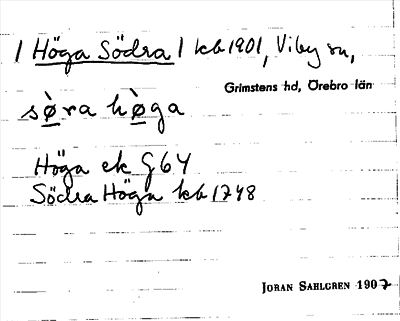 / Höga Södra / kb 1901, Viby sn,
Grimstens hd, Örebro län
sø̀ra hø̀ga
Höga ek G64
Södra Höga kb 1748
JORAN SAHLGREN 1907